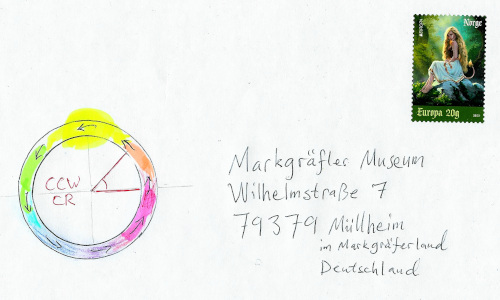 Norge
Europa 20g
CCW
CR
Markgräfler Museum
Wilhelmstraße 7
79379 Müllheim
im Markgräferland
Deutschland